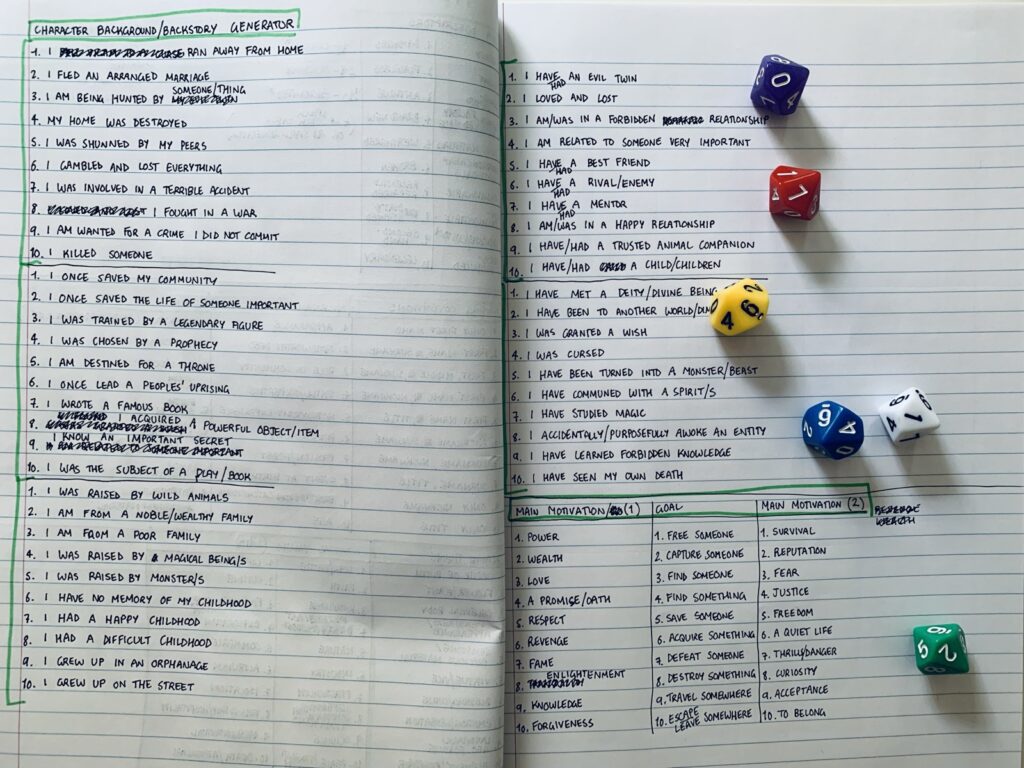 CHARACTER BACKGROUND/BACKSTORY GENERATOR
1. I RAN AWAY FROM HOME
2. I FLED AN ARRANGED MARRIAGE
3. I AM BEING HUNTED BY SOMEONE/THING
4. MY HOME WAS DESTROYED
5. I WAS SHUNNED BY MY PEERS
6. I GAMBLED AND LOST EVERYTHING
7. I WAS INVOLVED IN A TERRIBLE ACCIDENT
8. I FOUGHT IN A WAR
9. I AM WANTED FOR A CRIME I DID NOT COMMIT
10. I KILLED SOMEONE
1. I ONCE SAVED MY COMMUNITY
2. I ONCE SAVED THE LIFE OF SOMEONE IMPORTANT
3. I WAS TRAINED BY A LEGENDARY FIGURE
4. I WAS CHOSEN BY A PROPHECY
5. I AM DESTINED FOR A THRONE
6. I ONCE LEAD A PEOPLES' UPRISING
7. I WROTE A FAMOUS BOOK
8. I ACQUIRED A POWERFUL OBJECT/ITEM
9. I KNOW AN IMPORTANT SECRET
10. I WAS THE SUBJECT OF A PLAY/BOOK
1. I WAS RAISED BY WILD ANIMALS
2. I AM FROM A NOBLE/WEALTHY FAMILY
3. I AM FROM A POOR FAMILY
4. I WAS RAISED BY MAGICAL BEING/S
5. I WAS RAISED BY MONSTER/S
6. I HAVE NO MEMORY OF MY CHILDHOOD
7. I HAD A HAPPY CHILDHOOD
8. I HAD A DIFFICULT CHILDHOOD
9. I GREW UP IN AN ORPHANAGE
10. I GREW UP ON THE STREET
1. I HAVE/HAD AN EVIL TWIN
2. I LOVED AND LOST
3. I AM/WAS IN A FORBIDDEN RELATIONSHIP
4. I AM RELATED TO SOMEONE VERY IMPORTANT
5. I HAVE/HAD A BEST FRIEND
6. I HAVE/HAD A RIVAL/ENEMY
7. I HAVE/HAD A MENTOR
8. I AM/WAS IN A HAPPY RELATIONSHIP
9. I HAVE/HAD A TRUSTED ANIMAL COMPANION
10. I HAVE/HAD A CHILD/CHILDREN
1. I HAVE MET A DEITY/DIVINE BEING
2. I HAVE BEEN TO ANOTHER WORLD/
3. I WAS GRANTED A WISH
4. I WAS CURSED
5. I HAVE BEEN TURNED INTO A MONSTER/BEAST
6. I HAVE COMMUNED WITH A SPIRIT/S
7. I HAVE STUDIED MAGIC
8. I ACCIDENTALLY/PURPOSEFULLY AWOKE AN ENTITY
9. I HAVE LEARNED FORBIDDEN KNOWLEDGE
10. I HAVE SEEN MY OWN DEATH
MAIN MOTIVATION (1)
1. POWER
2. WEALTH
3. LOVE
4. A PROMISE/OATH
5. RESPECT
6. REVENGE
7. FAME
8. ENLIGHTENMENT
9. KNOWLEDGE
10. FORGIVENESS
GOAL
1. FREE SOMEONE
2. CAPTURE SOMEONE
3. FIND SOMEONE
4. FIND SOMETHING
5. SAVE SOMEONE
6. ACQUIRE SOMETHING
7. DEFEAT SOMEONE
8. DESTROY SOMETHING
9. TRAVEL SOMEWHERE
10. ESCAPE/LEAVE SOMEWHERE
MAIN MOTIVATION (2)
1. SURVIVAL
2. REPUTATION
3. FEAR
4. JUSTICE
5. FREEDOM
6. A QUIET LIFE
7. THRILL/DANGER
8. CURIOSITY
9. ACCEPTANCE
10. TO BELONG